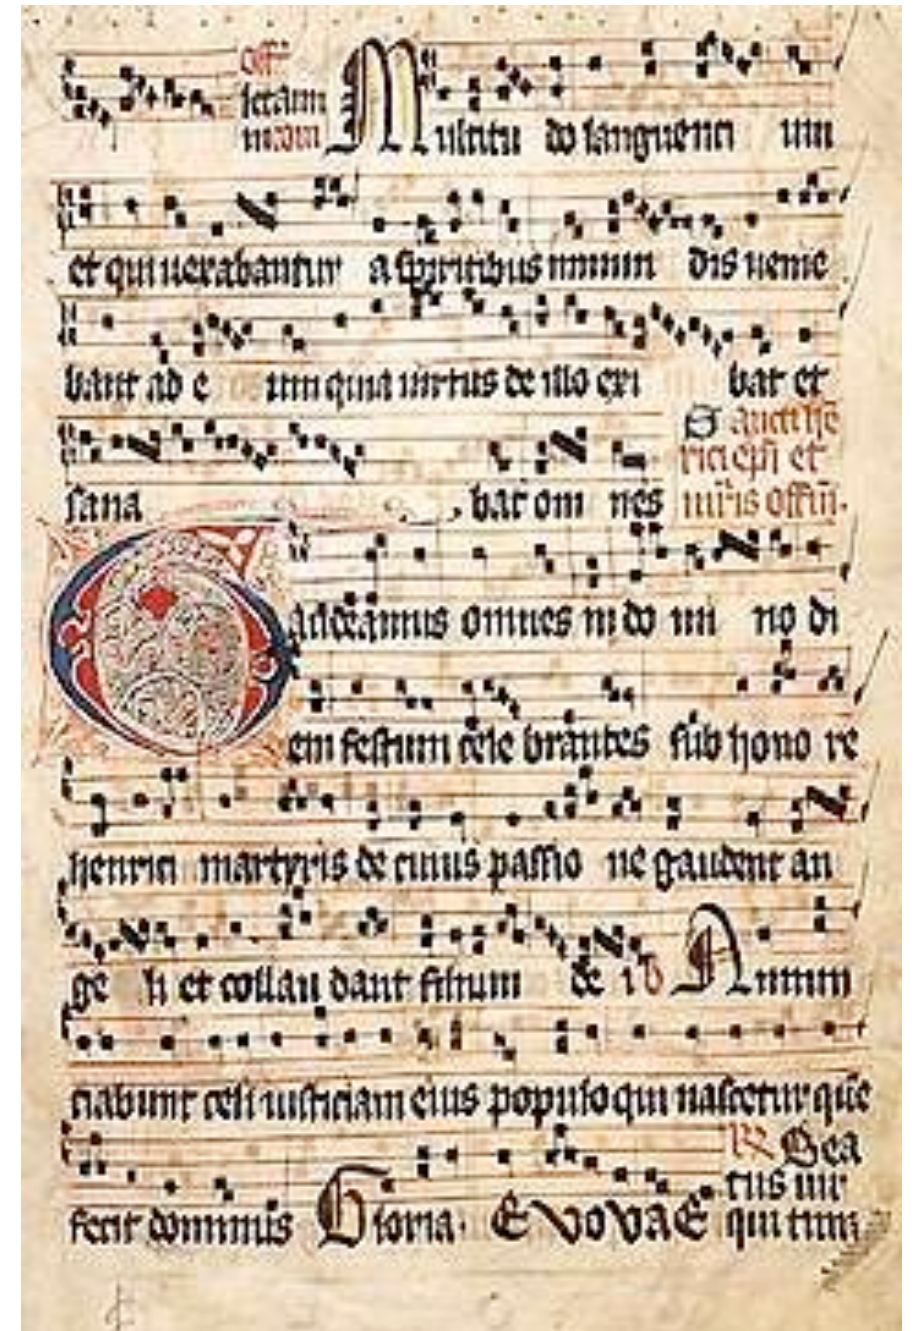 Offm
Multitudo languenti um
et qui uexabantur a spiritibus inmun dis uenie
bant ad e um quia uirtus de illo exi bat et
sana bat om nes
Sancti he
rici epi et
mris offm.
Gaudeamus omnes in do mi no di
em festum cele brantes sub hono re
henrici martyris de cuius passio ne gaudent an
ge li et collau dant filium de i Annun
ciabunt celi iusticiam eius populo qui nascetur que
fecit dominus Gloria. EVOVAE
Bea
tus uir
qui tim